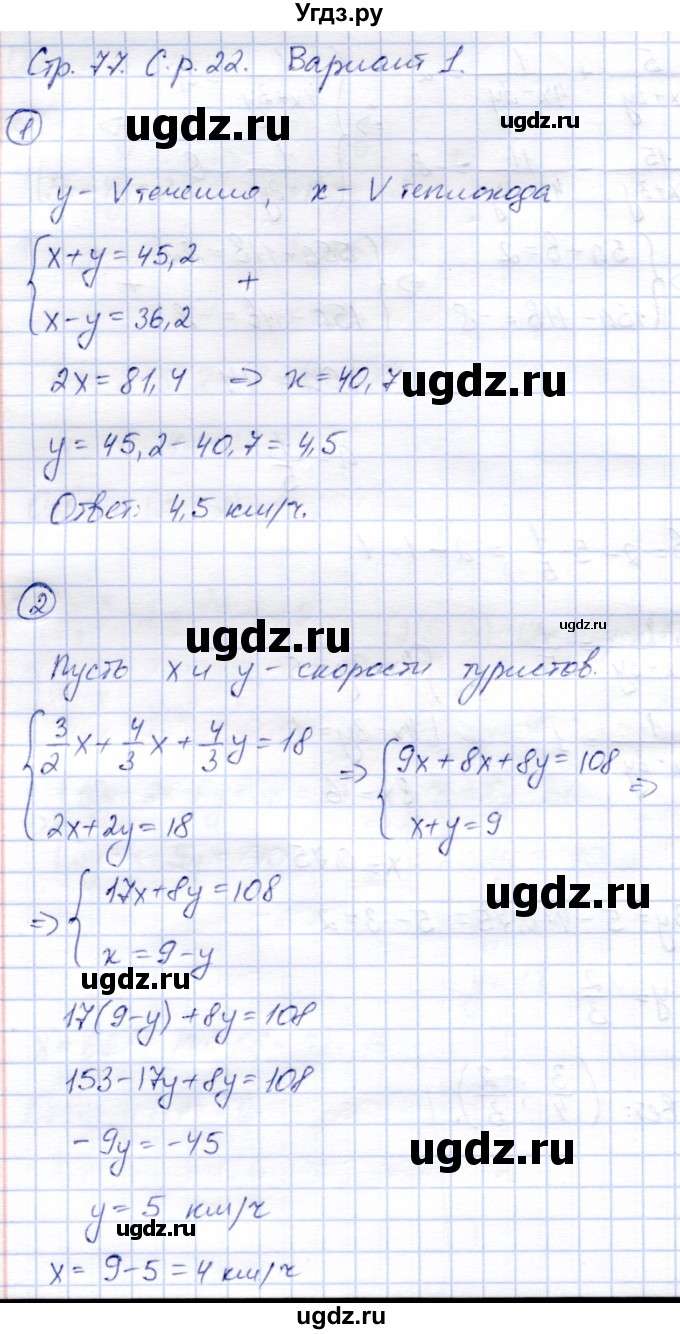 Угдз.ру
Стр. 77. С.р. 22. Вариант 1.
ugdz.ru ugdz.ru
1
y - V течения, x - V теплохода
{ x + y = 45,2
+
x - y = 36,2
2x = 81,4 => x = 40,7
ugdz.ru
y = 45,2 - 40,7 = 4,5
Ответ: 4,5 км/ч.
2
ugdz.ru ugdz.ru
Пусть x и y - скорости туристов.
{ 3/2 x + 4/3 x + 4/3 y = 18
2x + 2y = 18
=> { 9x + 8x + 8y = 108
x + y = 9 =>
=> { 17x + 8y = 108
x = 9 - y
ugdz.ru
ugdz.ru
17(9 - y) + 8y = 108
153 - 17y + 8y = 108
- 9y = -45
ugdz.ru
y = 5 км/ч
ugdz.ru
x = 9 - 5 = 4 км/ч
ugdz.ru